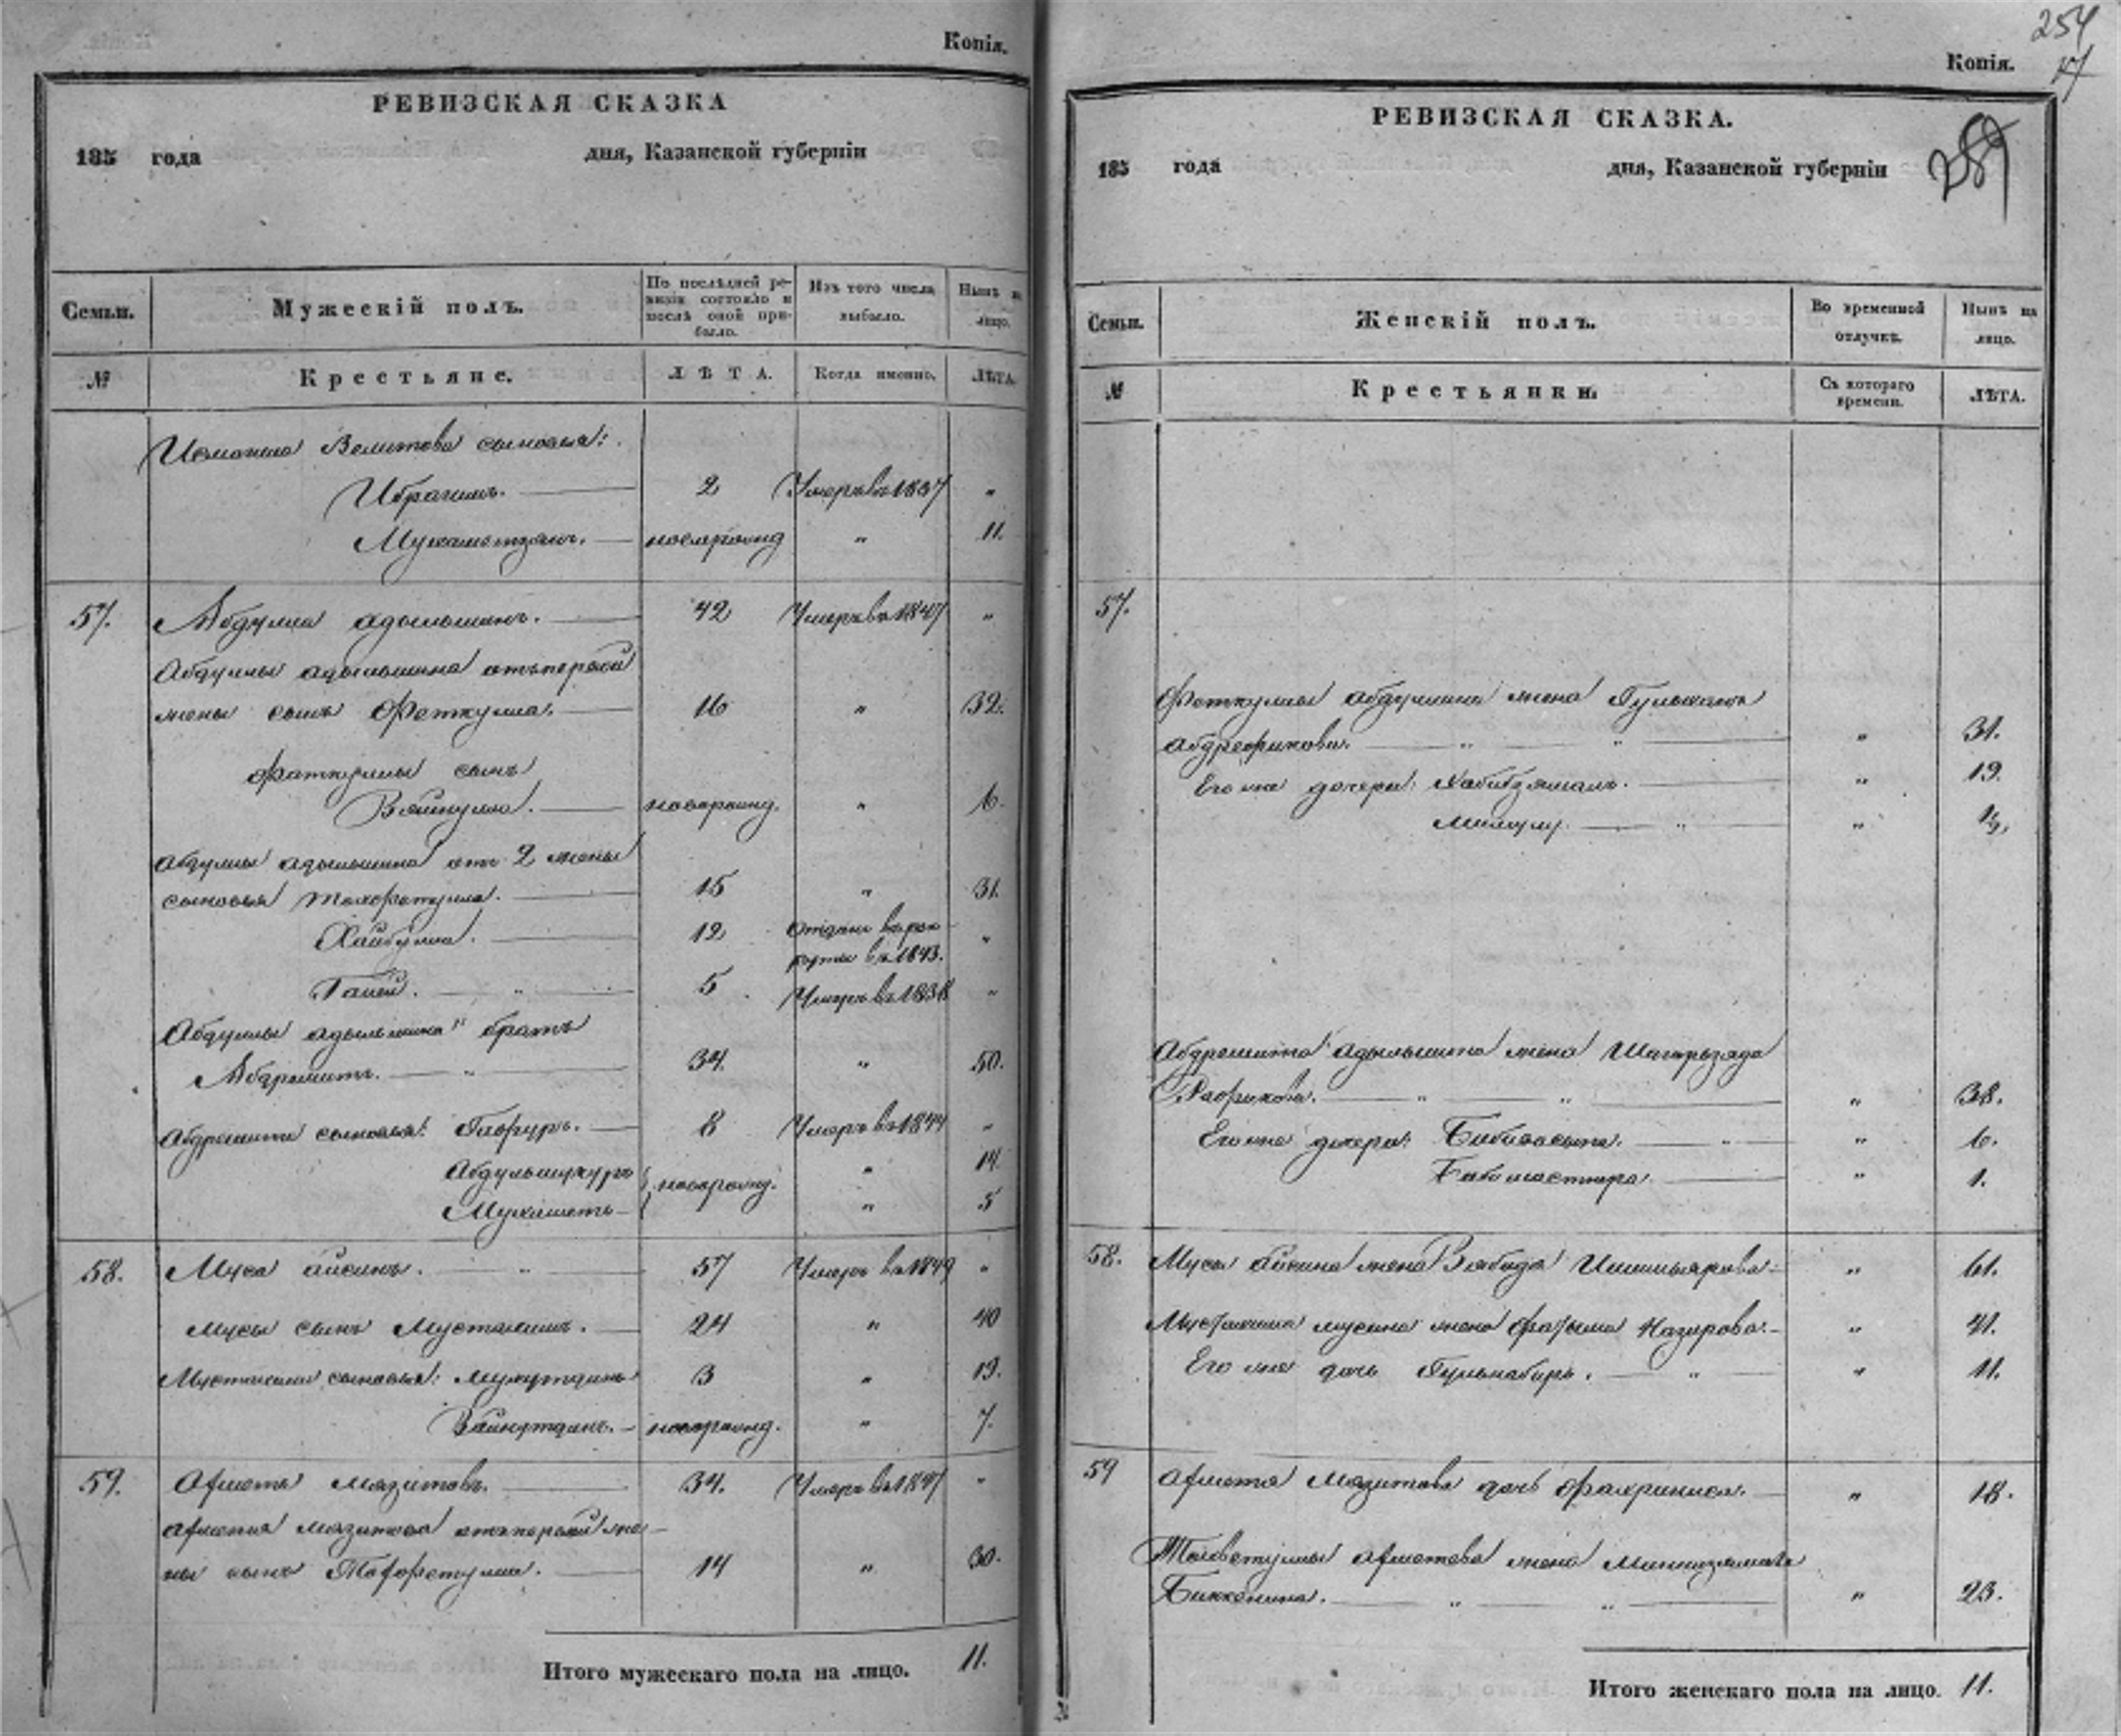 Копія.
РЕВИЗСКАЯ СКАЗКА
185 года дня, Казанской губерніи
Семьи. Мужескій полъ. По послѣдней ревизіи состояло и послѣ оной прибыло. Изъ того числа выбыло. Нынѣ на лицо.
№ Крестьяне. ЛѢТА. Когда именно. ЛѢТА.
Велитова сыновья:
Ибрагимъ. 2 Умеръ въ 1837 "
Мухаметзянъ. новорожд " 11.
57. Абдулла адильшинъ. 42 Умеръ въ 1847 "
Абдуллы адильшина отъ первой
жены сынъ Феткулла. 16 " 32.
Фаткуллы сынъ
Зяйнулла. новорожд. " 6.
Абдуллы адильшина отъ 2 жены
сыновья 15 " 31.
Хайбулла. 12 Отданъ въ рек-
руты въ 1843. "
Галей. 5 Умеръ въ 1838 "
Абдуллы адильшина братъ
Абдрешитъ. " 34. " 50.
Абдрешита сыновья: Гафуръ. 8 Умеръ въ 1844 "
Абдульшукуръ новорожд. " 14.
Мухаметъ " 5
58. Муса айсинъ. " 57 Умеръ въ 1849 "
Мусы сынъ Мустакимъ. 24 " 40
Мустакима сыновья: 3 " 19.
Зайнутдинъ. новорожд. " 7.
59. Ахметь Мязитовъ. 34. Умеръ въ 1847 "
Ахметя Мязитова отъ первой же-
ны сынъ 14 " 30.
Итого мужескаго пола на лицо. 11.
254
Копія. 17
РЕВИЗСКАЯ СКАЗКА.
185 года дня, Казанской губерніи
Семьи. Женскій полъ. Во временной отлучкѣ. Нынѣ на лицо.
№ Крестьянки. Съ котораго времени. ЛѢТА.
57.
Фаткуллы абдуллина жена
" " " 31.
Его же дочери: Хабибзямалъ. " 19.
" " ½,
Абдрешита адильшина жена
Рафикова. " " " 38.
Его же дочери: " " 6.
" 1.
58. Мусы айсина жена Зябида " 61.
Мустакима мусина жена Фатыма Назирова. " 41.
Его же дочь " " 11.
59 Ахметя Мязитова дочь Фахриниса. " 18.
ахметова жена
" " " 23.
Итого женскаго пола на лицо. 11.